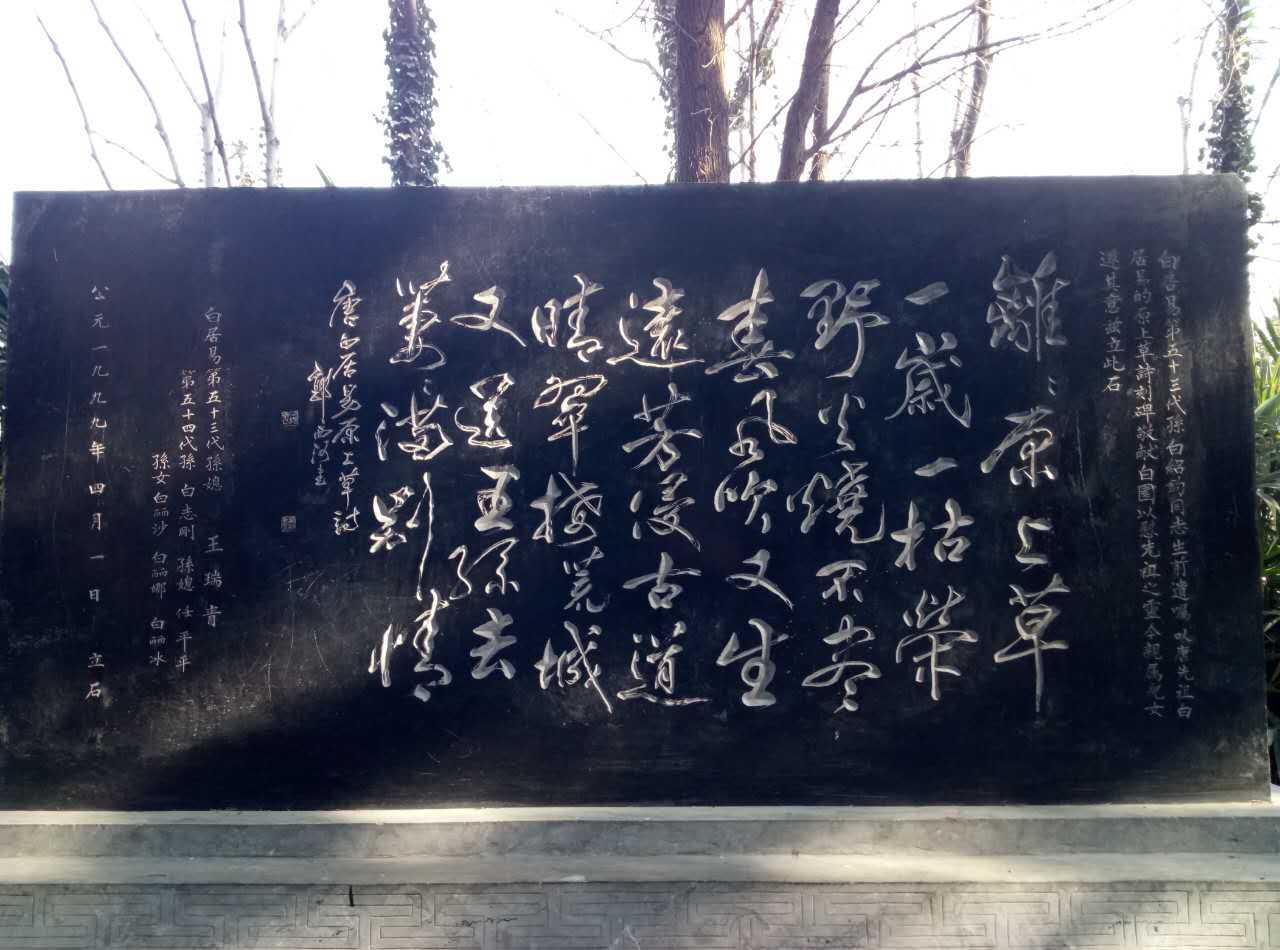 白居易第五十三代孫白紹鈞同志生前遺囑以唐先祖白
居易的原上草詩刻碑敬獻白園以慰先祖之靈今親属兒女
遵其意敬立此石
離〻原上草
一歲一枯榮
野火燒不盡
春風吹又生
遠芳侵古道
晴翠接荒城
又送王孫去
萋〻滿別情
唐白居易原上草詩
白居易第五十三代孫媳 王瑞青
第五十四代孫 白志剛 孫媳 任平平
孫女白丽沙 白丽娜 白丽冰
公元一九九九年四月一日立石